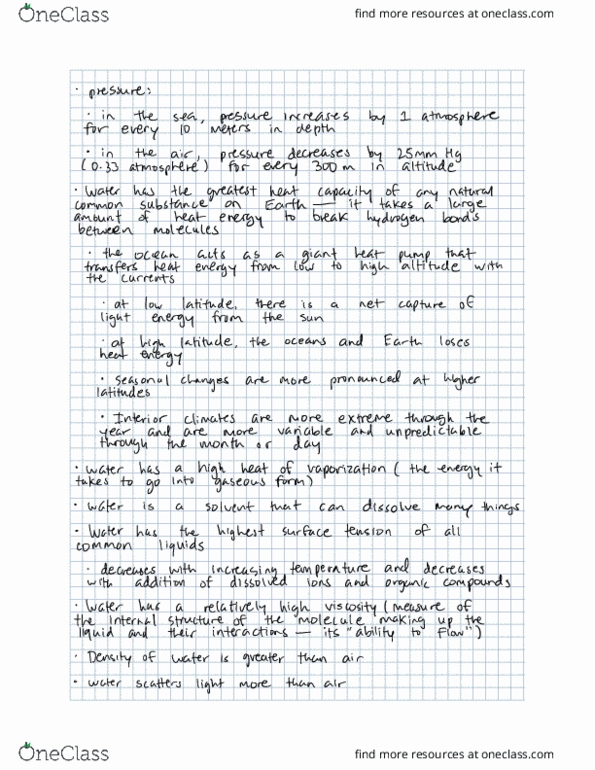 OneClass
find more resources at oneclass.com
· pressure:
· in the sea, pressure increases by 1 atmosphere
for every 10 meters in depth
· in the air, pressure decreases by 25mm Hg
(0.33 atmosphere) for every 300 m in altitude
· Water has the greatest heat capacity of any natural
common substance on Earth — it takes a large
amount of heat energy to break hydrogen bonds
between molecules
· the ocean acts as a giant heat pump that
transfers heat energy from low to high altitude with
the currents
· at low latitude, there is a net capture of
light energy from the sun
· at high latitude, the oceans and Earth loses
heat energy
· seasonal changes are more pronounced at higher
latitudes
· Interior climates are more extreme through the
year and are more variable and unpredictable
through the month or day
· water has a high heat of vaporization (the energy it
takes to go into gaseous form)
· water is a solvent that can dissolve many things
· Water has the highest surface tension of all
common liquids
· decreases with increasing temperature and decreases
with addition of dissolved ions and organic compounds
· Water has a relatively high viscosity (measure of
the internal structure of the molecule making up the
liquid and their interactions — its "ability to flow")
· Density of water is greater than air
· water scatters light more than air
OneClass
find more resources at oneclass.com